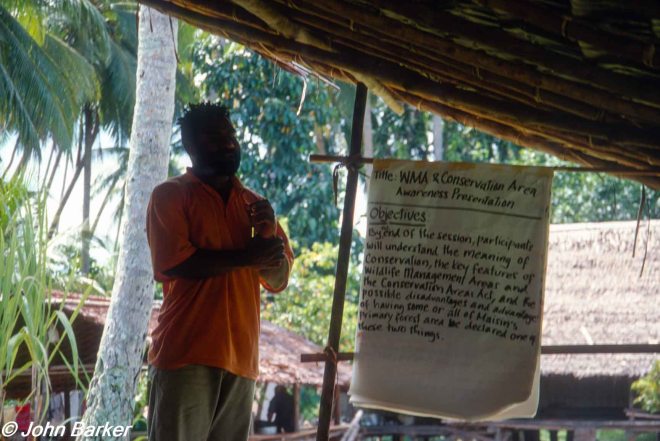 Title: WMA & Conservation Area
Awareness Presentation
Objectives
By end of the session, participants
will understand the meaning of
Conservation, the key features of
Wildlife Management Areas and
the Conservation Areas Act, and the
possible disadvantages and advantages
of having some or all of Maisin's
primary forest area be declared one of
these two things.
© John Barker